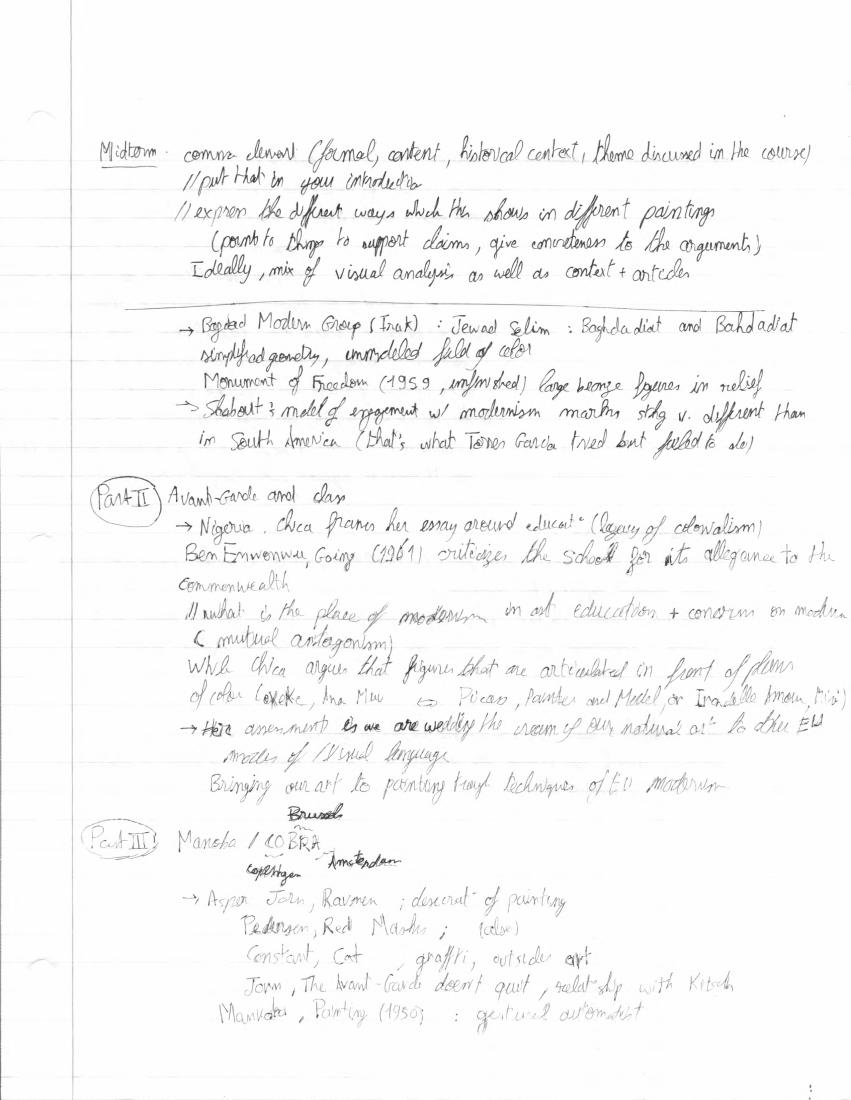 Midterm. common element (formal, content, historical context, theme discussed in the course)
// put that in your introduction
// express the different ways which this shows in different paintings
(point to things to support claims, give concreteness to the arguments)
Ideally, mix of visual analysis as well as context + articles
→ Bagdad Modern Group (Irak) : Jewad Selim : Baghdadiat and Bahdadiat
simplified geometry, unmodeled field of color
Monument of Freedom (1959, unfinished) large bronze figures in relief
→ Shabout's model of engagement w/ modernism marks sthg v. different than
in South America (that's what Torres Garcia tried but failed to do)
Part II Avant-Garde and class
→ Nigeria. Chica frames her essay around educat° (legacy of colonialism)
Ben Enwonwu, Going (1961) criticizes the school for its allegiance to the
Commonwealth
// what is the place of modernism in art education + concerns on modern
( mutual antagonism)
While Chica argues that figures that are articulated in front of plans
of color (Okeke, Ana Mmuo ⇔ Picasso, Painter and Model, or Miró)
→ assessment is we are wedding the cream of our natural art to other EU
modes of / visual language
Bringing our art to painting trough techniques of EU modernism
Brussels
Part III Mancoba / COBRA
Copenhagen Amsterdam
→ Asper Jorn, ; descrat° of painting
Pedersen, Red Masks ; (color)
Constant, Cat , graffiti, outsider art
Jorn, The Avant-Garde doesn't quit, relat°ship with Kitsch
Mankoba, Painting (1950) : gestural automatist